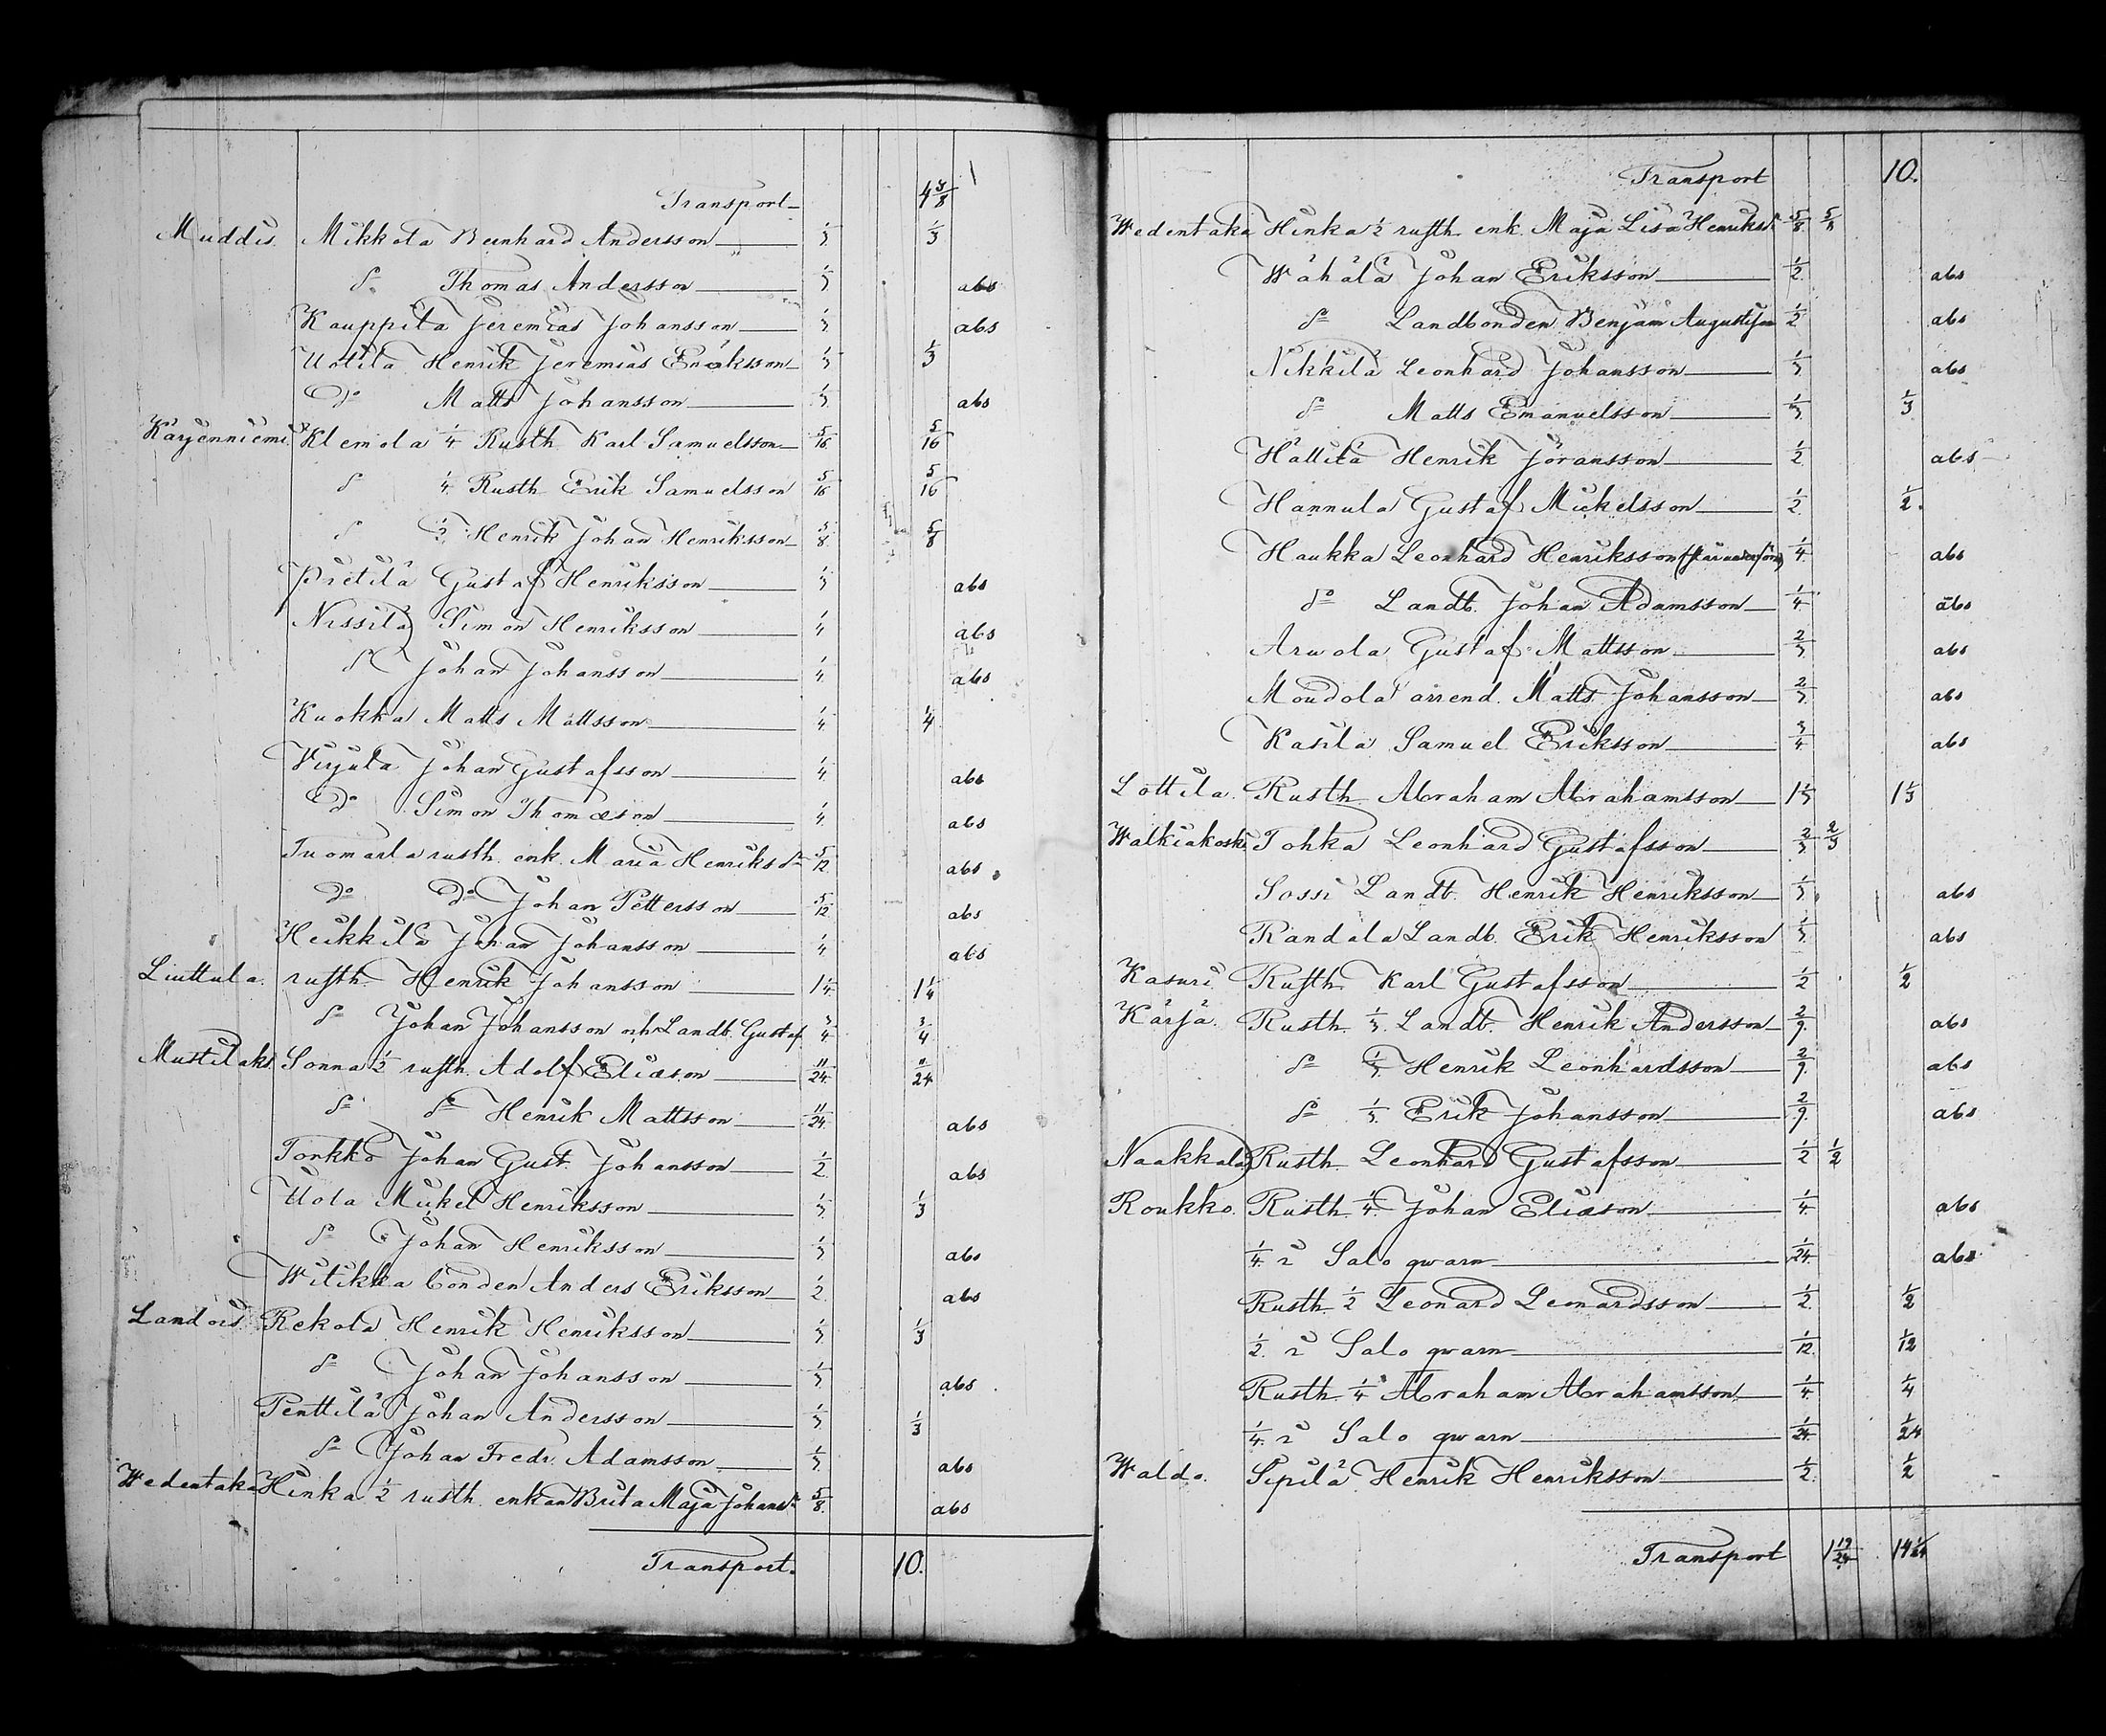 Transport 4 3/8
Muddis. Mikkola Bernhard Andersson 1/3 1/3
do Thomas Andersson 1/3 abs
Kauppila Jeremias Johansson 1/3 abs
Uotila Henrik Jeremias Eriksson 1/3 1/3
do Matts Johansson 1/3 abs
Kärjenniemi Klemola 1/4 Rusth Karl Samuelsson 5/16 5/16
do 1/4 Rusth Erik Samuelsson 5/16 5/16
do 1/2 Henrik Johan Henriksson 5/8 5/8
Pietilä Gustaf Henriksson 1/3 abs
Nissilä Simon Henriksson 1/4 abs
do Johan Johansson 1/4 abs
Kuokka Matts Mattsson 1/4 1/4
Virjula Johan Gustafsson 1/4 abs
do Simon Thomæson 1/4 abs
Tuomarla rusth. enk. Maria Henriksdr 5/12 abs
do do Johan Pettersson 5/12 abs
Heikkilä Johan Johansson 1/4 abs
Liuttula. rusth. Henrik Johansson 1 1/4 1 1/4
do Johan Johansson och Landb. Gustaf 3/4 3/4
Mustilaks. Sonna 1/2 rusth. Adolf Eliæson 11/24 11/24
do do Henrik Mattsson 11/24 abs
Tonkko Johan Gust. Johansson 1/2 abs
Uola Mickel Henriksson 1/3 1/3
do Johan Henriksson 1/3 abs
Witikka bonden Anders Eriksson 1/2 abs
Landois. Rekola Henrik Henriksson 1/3 1/3
do Johan Johansson 1/3 abs
Penttilä Johan Andersson 1/3 1/3
do Johan Fredr. Adamsson 1/3 abs
Wedentaka Hinka 1/2 rusth. enkan Brita Maja Johansdr 5/8 abs
Transport. 10.
Transport 10.
Wedentaka Hinka 1/2 rusth. enk. Maja Lisa Henriksdr 5/8 5/8
Wähälä Johan Eriksson 1/2 abs
do Landbonden Benjam Augustsson 1/2 abs
Nikkilä Leonhard Johansson 1/3 abs
do Matts Emanuelsson 1/3 1/3
Hättilä Henrik Jöransson 1/2 abs
Hannula Gustaf Mickelsson 1/2 1/2.
Haukka Leonhard Henriksson 1/4 abs
do Landb. Johan Adamsson 1/4 abs
Arwola Gustaf Mattsson 2/3 abs
Moudola arrend. Matts Johansson 2/3 abs
Kasila Samuel Eriksson 3/4 abs
Lottila. Rusth. Abraham Abrahamsson 1 1/3 1 1/3
Walkiakoski Tohka Leonhard Gustafsson 2/3 2/3
Sossi Landb. Henrik Henriksson 1/3 abs
Randala Landb. Erik Henriksson 1/3 abs
Kasuri Rusth. Karl Gustafsson 1/2 1/2
Kärjä. Rusth. 1/3 Landb. Henrik Andersson 2/9 abs
do 1/3 Henrik Leonhardsson 2/9 abs
do 1/3 Erik Johansson 2/9 abs
Naakkala Rusth. Leonhard Gustafsson 1/2 1/2
Roukko. Rusth 1/4 Johan Eliæson 1/4 abs
1/4 i Salo qwarn 1/24 abs
Rusth 1/2 Leonard Leonardsson 1/2 1/2
1/2 i Salo qwarn 1/12 1/12
Rusth 1/4 Abraham Abrahamsson 1/4 1/4
1/4 i Salo qwarn 1/24 1/24
Waldo. Sipilä Henrik Henriksson 1/2 1/2
Transport 1 19/24 14 1/24